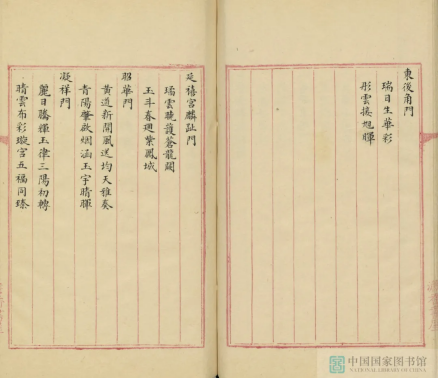 東後角門
瑞日生華彩
彤雲接旭暉
延禧宮麟趾門
璚雲曉護蒼龍闕
玉斗春迴紫鳳城
昭華門
黄道新開風送均天雅奏
青陽肇啟烟涵玉宇晴暉
凝祥門
麗日騰輝玉律三陽初轉
晴雲布彩璇宫五福同臻
中国国家图书馆
NATIONAL LIBRARY OF CHINA